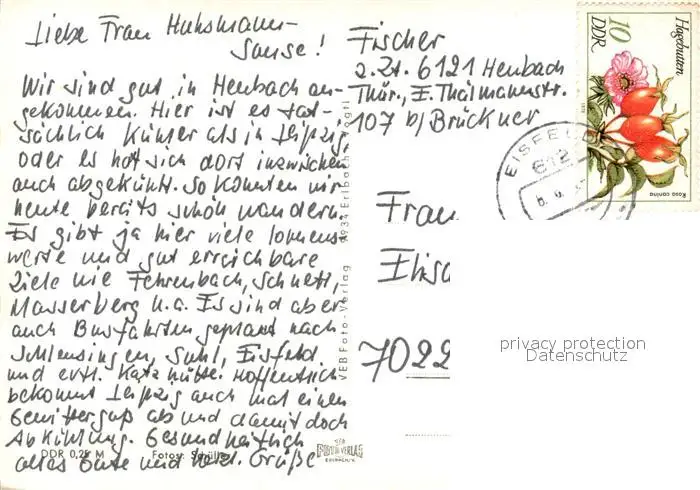 Liebe Frau Huhsmann-
Sause!
Wir sind gut in Heubach an-
gekommen. Hier ist es tat-
sächlich kühler als in Leipzig,
oder es hat sich dort inzwischen
auch abgekühlt. So konnten wir
heute bereits schön wandern.
Es gibt ja hier viele lohnens-
werte und gut erreichbare
Ziele wie Fehrenbach, Schnett,
Masserberg u.a. Es sind aber
auch Busfahrten geplant nach
Schleusingen, Suhl, Eisfeld
und evtl. Katzhütte. Hoffentlich
bekommt Leipzig auch mal einen
Gewitterguß ab und damit doch
Abkühlung. Gesundheitlich
alles Gute und herzl. Grüße
Fischer
z.Zt. 6121 Heubach
Thür., E. Thälmannstr.
107 b/Brückner
Frau
Elisa
7022
Hagebutten
10
DDR
Rosa canina
EISFELD
612
VEB Foto-Verlag 9934 Erlbach
DDR 0,25 M
Fotos: Schüller
FOTO VERLAG
ERLBACH/V.
privacy protection
Datenschutz